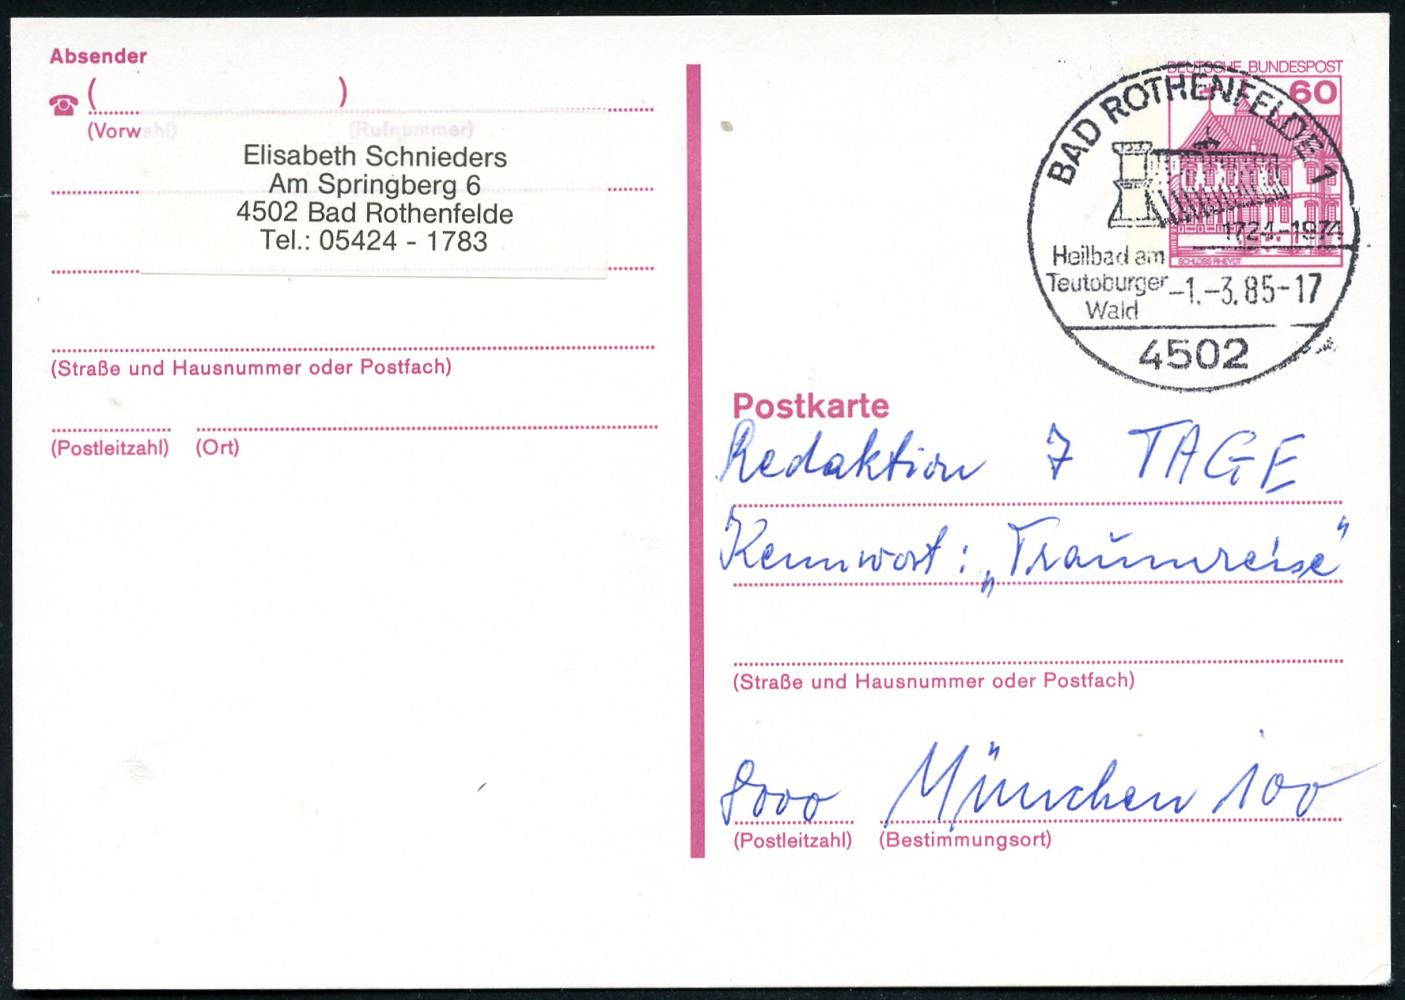 Absender
☎ ( )
(Vorwahl) (Rufnummer)
Elisabeth Schnieders
Am Springberg 6
4502 Bad Rothenfelde
Tel.: 05424 - 1783
(Straße und Hausnummer oder Postfach)
(Postleitzahl) (Ort)
DEUTSCHE BUNDESPOST
60
SCHLOSS RHEYDT
BAD ROTHENFELDE 1
1724-1974
Heilbad am
Teutoburger
Wald
-1.-3.85-17
4502
Postkarte
Redaktion 7 TAGE
Kennwort: „Traumreise"
(Straße und Hausnummer oder Postfach)
8000 München 100
(Postleitzahl) (Bestimmungsort)